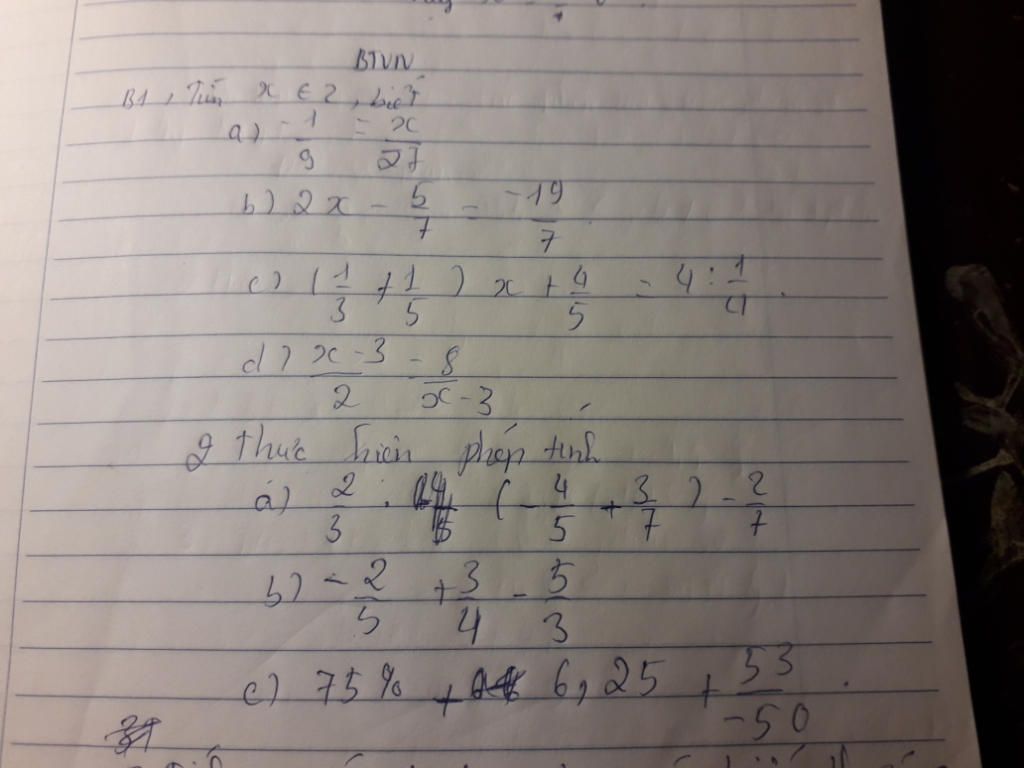 BTVN
B1, Tìm x ∈ Z, biết
a) -1/9 = x/27
b) 2x - 5/7 = -19/7
c) (1/3 + 1/5) x + 4/5 = 4 : 1/4.
d) x-3/2 = 8/x-3
2 thực hiện phép tính
a) 2/3 . (-4/5 + 3/7) - 2/7
b) -2/5 + 3/4 - 5/3
c) 75% + 6,25 + 53/-50.